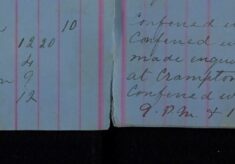 10
12 20
4
9
12
Confined
Confined
made enqui
at Crampton
Confined w
9. P.M &